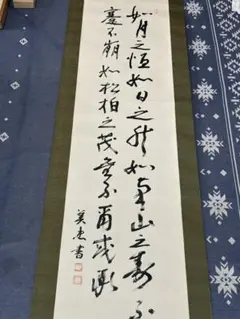 如月之恒如日之升如南山之寿不
騫不崩如松柏之茂無不爾或承
美恵書